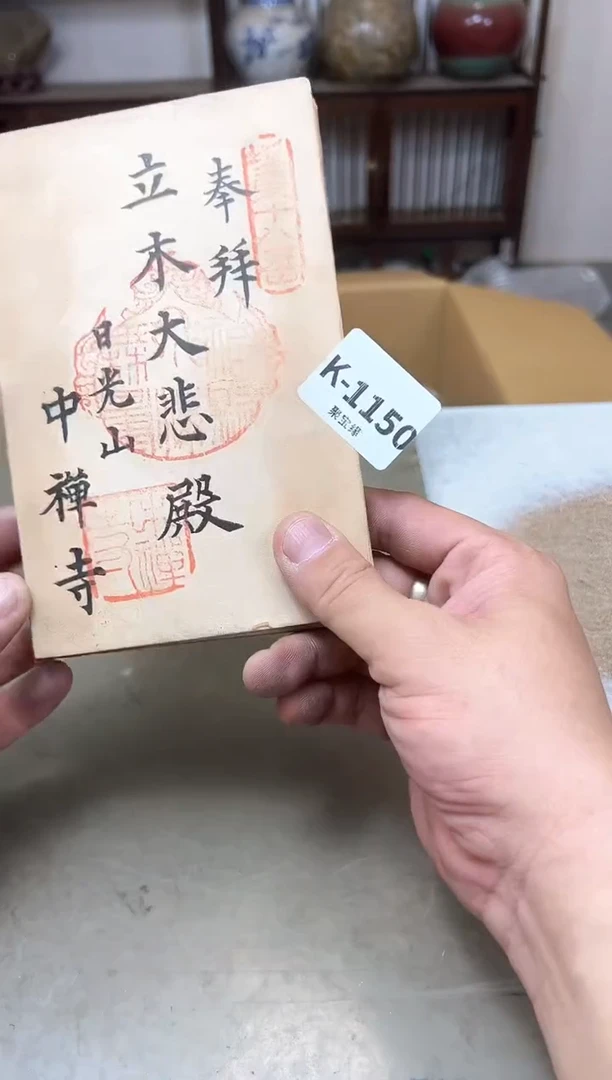 奉拜
立木大悲殿
日光山
中禪寺
K-1150
聚宝缘